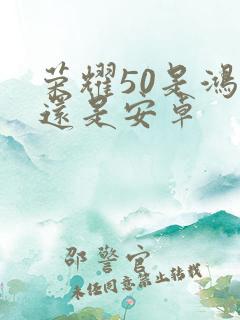 荣耀50是鸿
还是安卓
邵警官
未经同意禁止转载